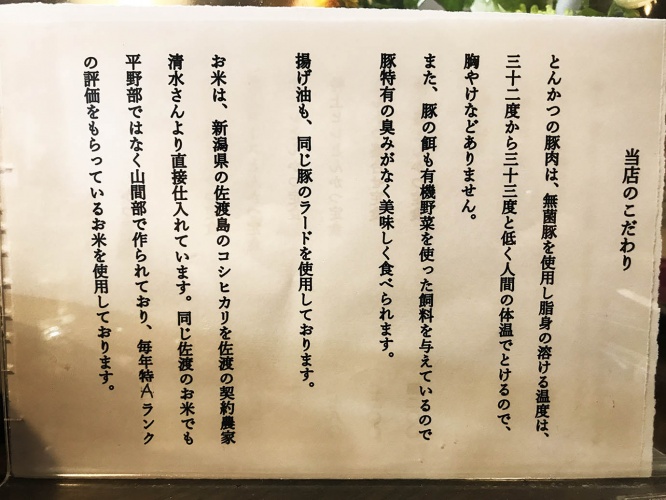 当店のこだわり
とんかつの豚肉は、無菌豚を使用し脂身の溶ける温度は、
三十二度から三十三度と低く人間の体温でとけるので、
胸やけなどありません。
また、豚の餌も有機野菜を使った飼料を与えているので
豚特有の臭みがなく美味しく食べられます。
揚げ油も、同じ豚のラードを使用しております。
お米は、新潟県の佐渡島のコシヒカリを佐渡の契約農家
清水さんより直接仕入れています。同じ佐渡のお米でも
平野部ではなく山間部で作られており、毎年特Aランク
の評価をもらっているお米を使用しております。